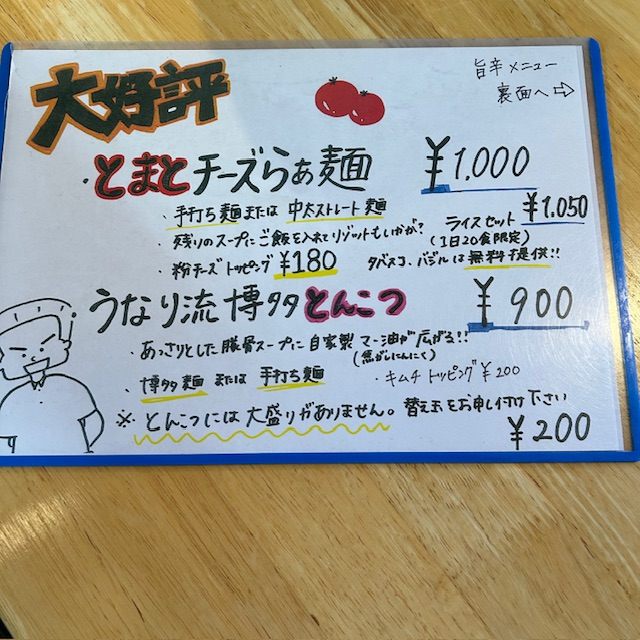 大好評
旨辛メニュー
裏面へ⇨
・とまとチーズらぁ麺 ¥1.000
・手打ち麺または中太ストレート麺
ライスセット ¥1.050
・残りのスープにご飯を入れてリゾットもいかが?
(1日20食限定)
・粉チーズトッピング ¥180
タバスコ、バジルは無料提供!!
うなり流博多とんこつ ¥900
・あっさりとした豚骨スープに自家製マー油が広がる!!
(焦がしにんにく)
・博多麺または手打ち麺
・キムチトッピング¥200
※とんこつには大盛りがありません。替え玉をお申し付け下さい
¥200